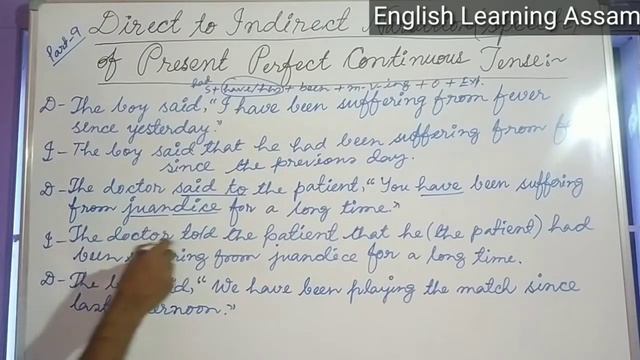 English Learning Assam
Part-9
Direct to Indirect
of Present Perfect Continuous Tense:-
S+have/has+been+m.v.ing+O+Ext.
D- The boy said, "I have been suffering from fever
since yesterday."
I- The boy said that he had been suffering from
since the previous day.
D- The doctor said to the patient, "You have been suffering
from juandice for a long time."
I- The doctor told the patient that he (the patient) had
been from juandice for a long time.
D- The "We have been playing the match since